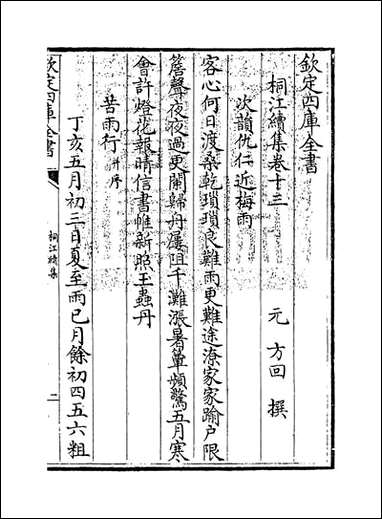 欽定四庫全書
桐江續集卷十三
元 方回 撰
次韻仇仁近梅雨
客心何日渡桑乾瑣瑣良難雨更難途潦家家踰户限
簷聲夜夜過更闌歸舟屢阻千灘漲暑簟頻驚五月寒
會許燈花報晴信書帷新照玉蟲丹
苦雨行并序
丁亥五月初三日夏至雨已月餘初四五六粗
欽定四庫全書
桐江續集